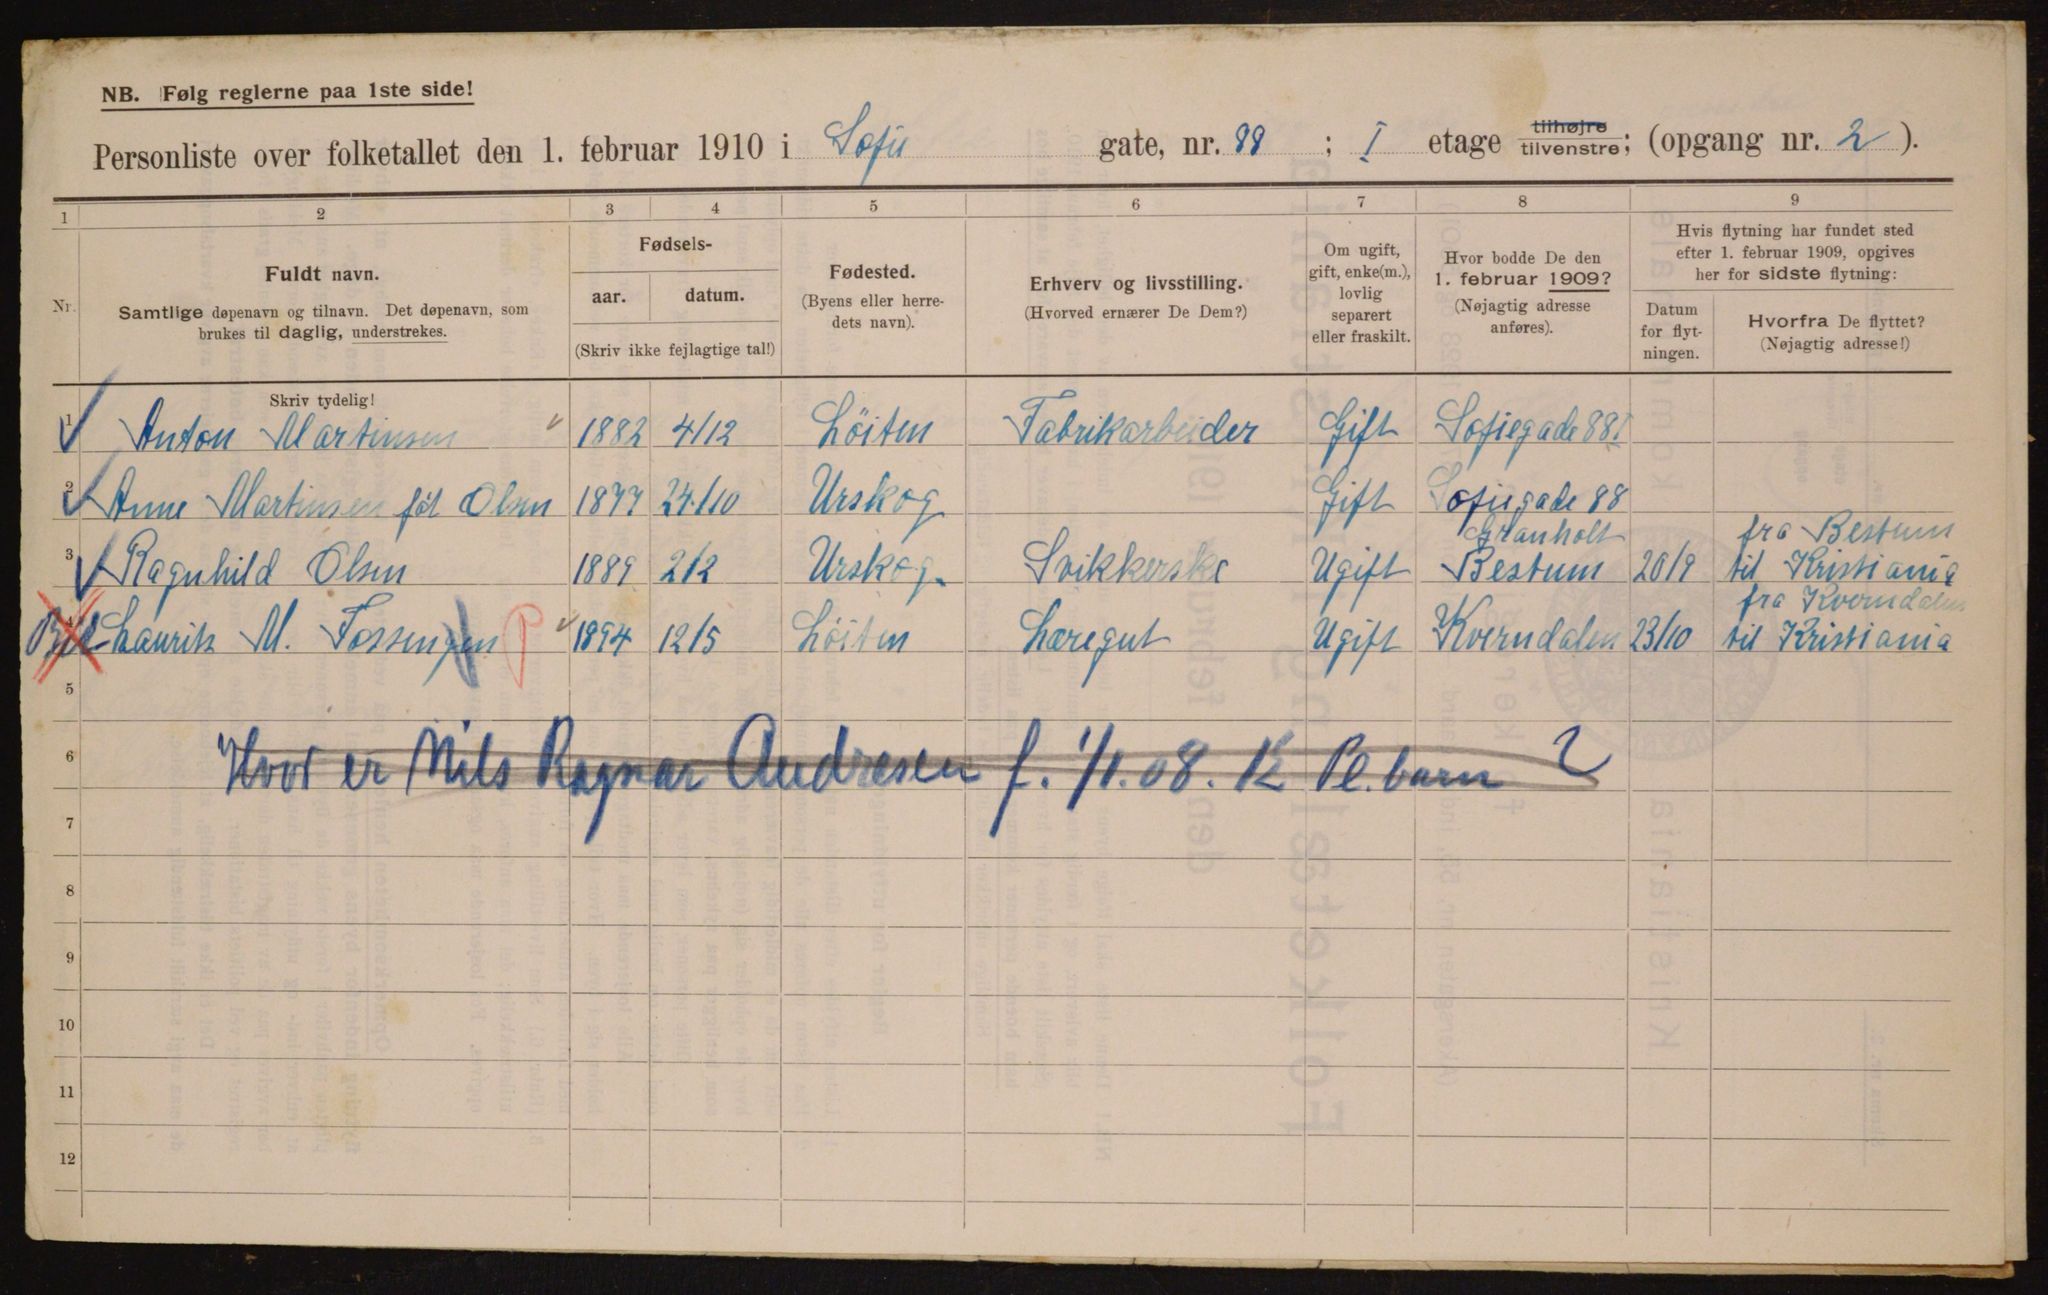 NB. Følg reglerne paa 1ste side!
Personliste over folketallet den 1. februar 1910 i Sofie gate, nr. 88 ; I etage tilhøjre tilvenstre; (opgang nr. 2 ).
1 2 3 4 5 6 7 8 9
Nr.
Fuldt navn.
Samtlige døpenavn og tilnavn. Det døpenavn, som
brukes til daglig, understrekes.
Fødsels-
aar. datum.
(Skriv ikke fejlagtige tal!)
Fødested.
(Byens eller herre-
dets navn).
Erhverv og livsstilling.
(Hvorved ernærer De Dem?)
Om ugift,
gift, enke(m.),
lovlig
separert
eller fraskilt.
Hvor bodde De den
1. februar 1909?
(Nøjagtig adresse
anføres).
Hvis flytning har fundet sted
efter 1. februar 1909, opgives
her for sidste flytning:
Datum
for flyt-
ningen.
Hvorfra De flyttet?
(Nøjagtig adresse!)
Skriv tydelig!
1 Anton Martinsen 1882 4/12 Løiten Fabrikarbeider Gift Sofiegade 88 I
2 Anne Martinsen føt Olsen 1877 24/10 Urskog Gift Sofiegade 88
Granholt fra Bestum
3 Ragnhild Olsen 1889 2/2 Urskog. Svikkerske Ugift Bestum 20/9 til Kristiania
fra Kverndalen
4 Laurits M. Fossengen 1894 12/5 Løiten Læregut Ugift Kverndalen 23/10 til Kristiania
5
6 Hvor er Nils Ragnar Andresen f. 1/1.08. K Pl.barn ?
7
8
9
10
11
12